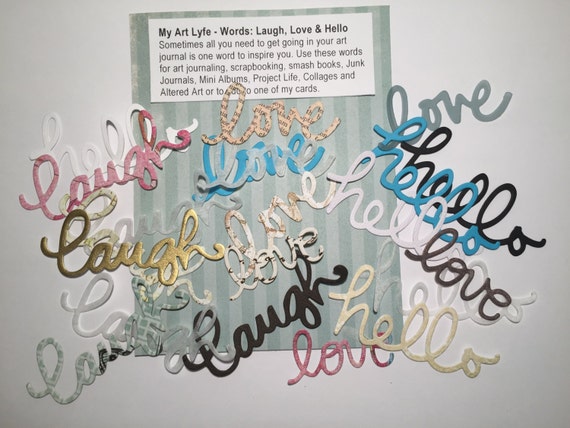 My Art Lyfe - Words: Laugh, Love & Hello
Sometimes all you need to get going in your art
journal is one word to inspire you. Use these words
for art journaling, scrapbooking, smash books, Junk
Journals, Mini Albums, Project Life, Collages and
Altered Art or to add to one of my cards.
love
love
hello
laugh
love
hello
hello
laugh
love
hello
laugh
love
love
laugh
hello
laugh
hello
laugh
love